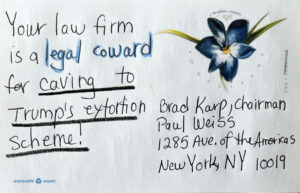 Your law firm
is a legal coward
for caving to
Trump's extortion
scheme!
Brad Karp, chairman
Paul Weiss
1285 Ave. of the Americas
New York, NY 10019